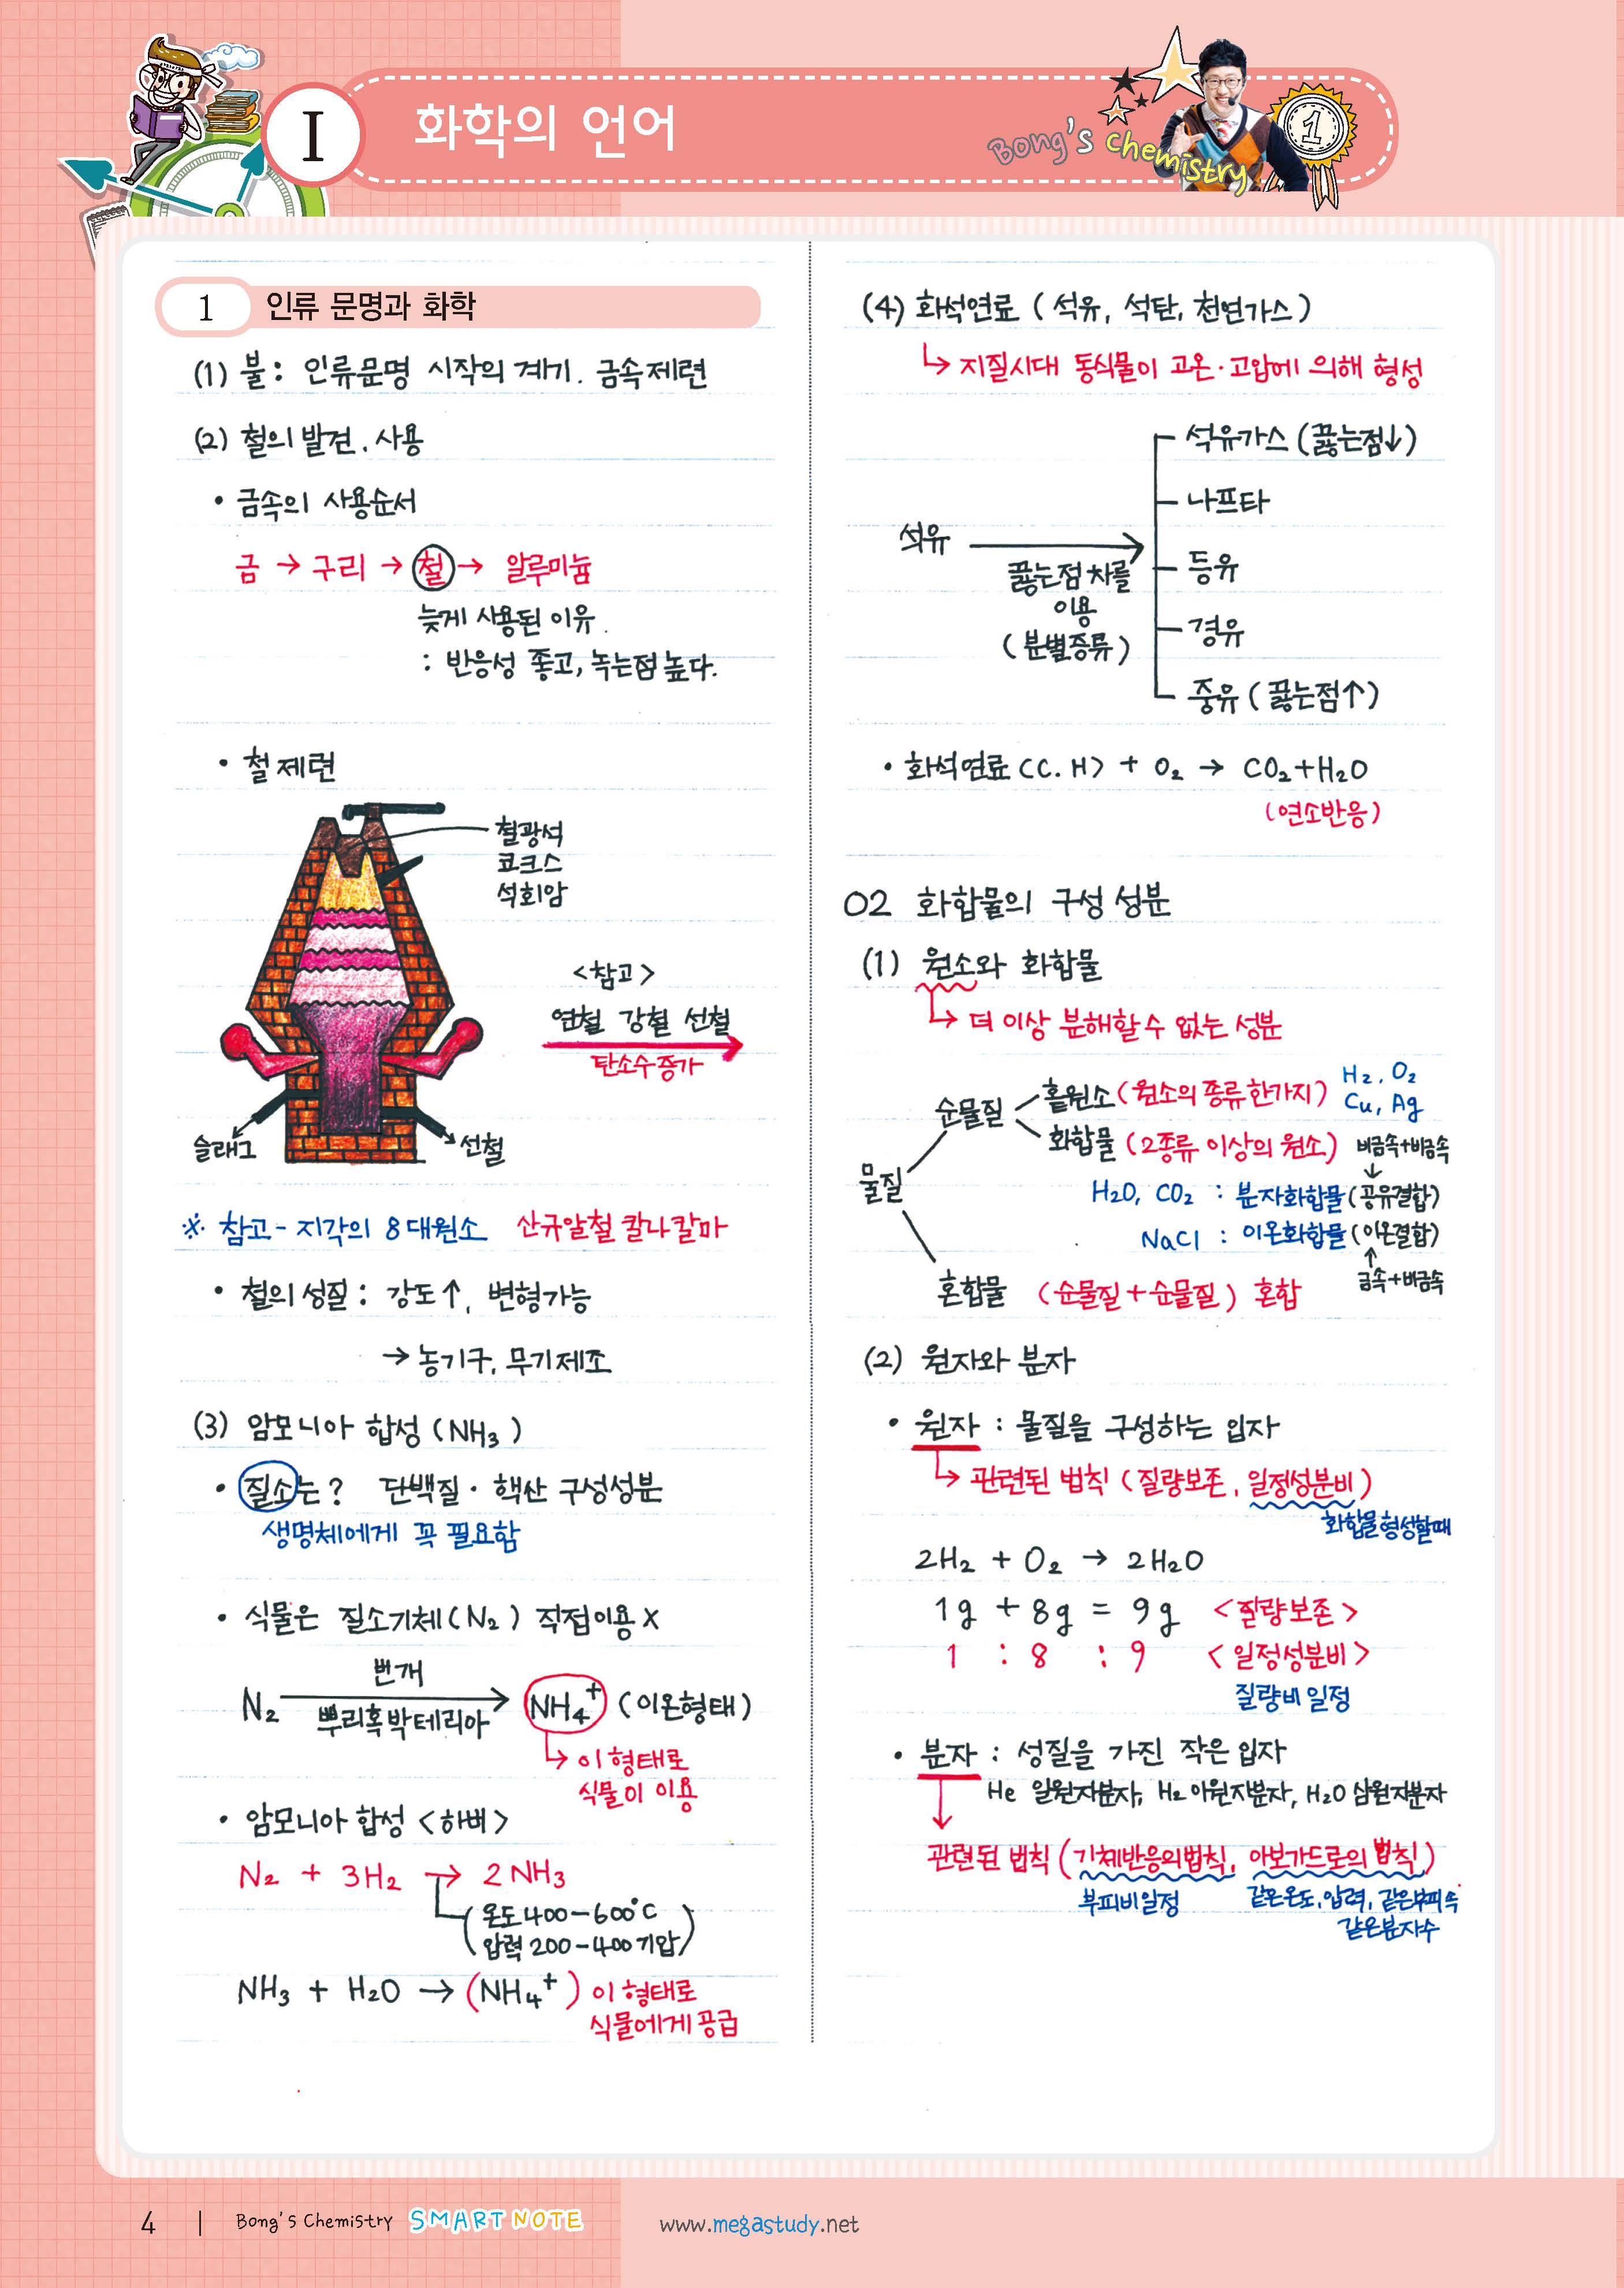 I
화학의 언어
Bong's chemistry
1
1 인류 문명과 화학
(1) 불 : 인류문명 시작의 계기. 금속제련
(2) 철의 발견. 사용
• 금속의 사용순서
금 → 구리 → 철 → 알루미늄
늦게 사용된 이유.
: 반응성 좋고, 녹는점 높다.
• 철 제련
철광석
코크스
석회암
<참고>
연철 강철 선철
탄소수증가
슬래그
선철
※ 참고 - 지각의 8대원소 산규알철 칼나칼마
• 철의 성질 : 강도↑, 변형가능
→ 농기구, 무기제조
(3) 암모니아 합성 (NH₃)
• 질소는? 단백질·핵산 구성성분
생명체에게 꼭 필요함
• 식물은 질소기체(N₂) 직접이용 X
번개
N₂ → NH₄⁺ (이온형태)
뿌리혹박테리아
↳ 이 형태로
식물이 이용
• 암모니아 합성 <하버>
N₂ + 3H₂ → 2NH₃
(온도 400-600°C
압력 200-400기압)
NH₃ + H₂O → (NH₄⁺) 이 형태로
식물에게 공급
(4) 화석연료 (석유, 석탄, 천연가스)
↳ 지질시대 동식물이 고온·고압에 의해 형성
석유가스 (끓는점↓)
나프타
석유 →
등유
끓는점 차를
이용
(분별증류)
경유
중유 (끓는점↑)
• 화석연료 (C.H) + O₂ → CO₂+H₂O
(연소반응)
02 화합물의 구성 성분
(1) 원소와 화합물
↳ 더 이상 분해할 수 없는 성분
H₂, O₂
순물질 홑원소 (원소의 종류한가지) Cu, Ag
화합물 (2종류 이상의 원소) 비금속+비금속
물질
H₂O, CO₂ : 분자화합물 (공유결합)
NaCl : 이온화합물 (이온결합)
금속+비금속
혼합물 (순물질+순물질) 혼합
(2) 원자와 분자
• 원자 : 물질을 구성하는 입자
↳ 관련된 법칙 (질량보존, 일정성분비)
화합물형성할때
2H₂ + O₂ → 2H₂O
1g + 8g = 9g <질량보존>
1 : 8 : 9 <일정성분비>
질량비 일정
• 분자 : 성질을 가진 작은 입자
He 일원자분자, H₂ 이원자분자, H₂O 삼원자분자
관련된 법칙 (기체반응의법칙, 아보가드로의 법칙)
부피비일정 같은온도, 압력, 같은부피속
같은분자수
4 | Bong's Chemistry SMART NOTE www.megastudy.net